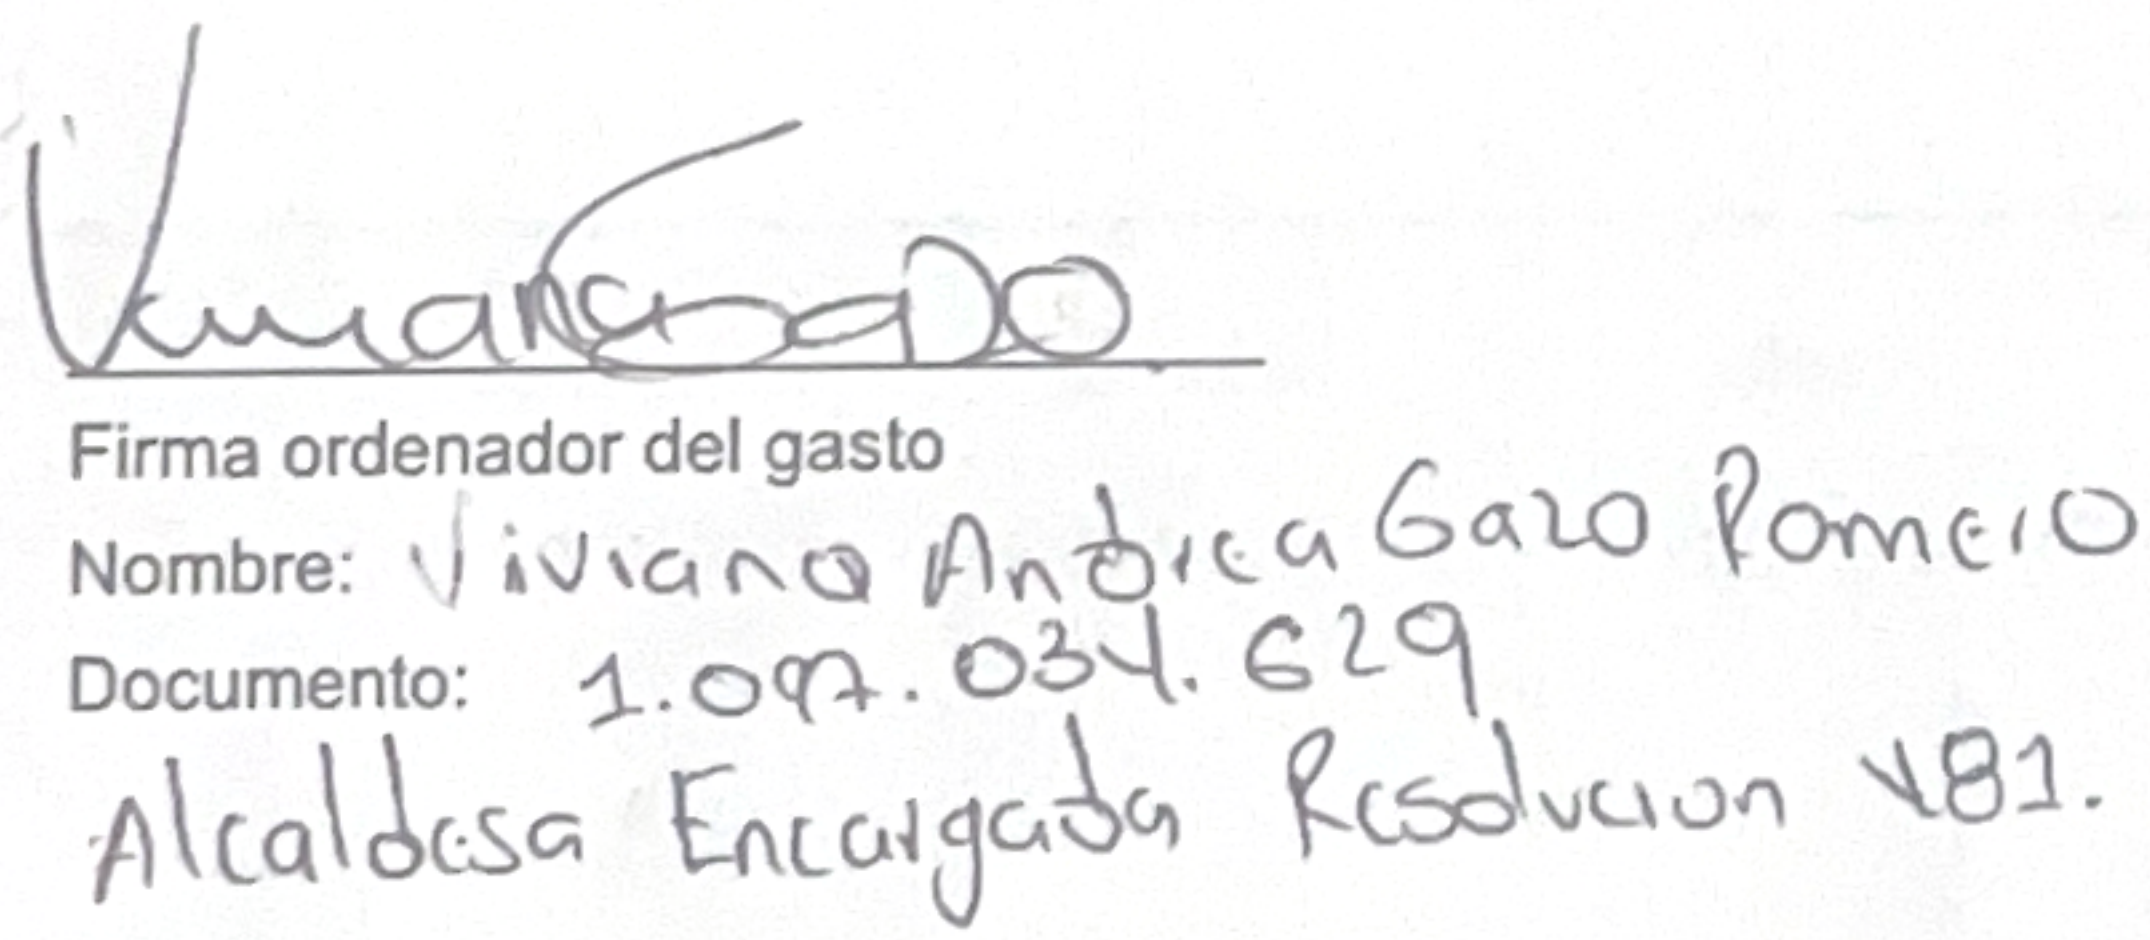 Firma ordenador del gasto
Nombre: Viviana Andrea Gazo Romero
Documento: 1.097.034.629
Alcaldesa Encargada Resolucion 481.